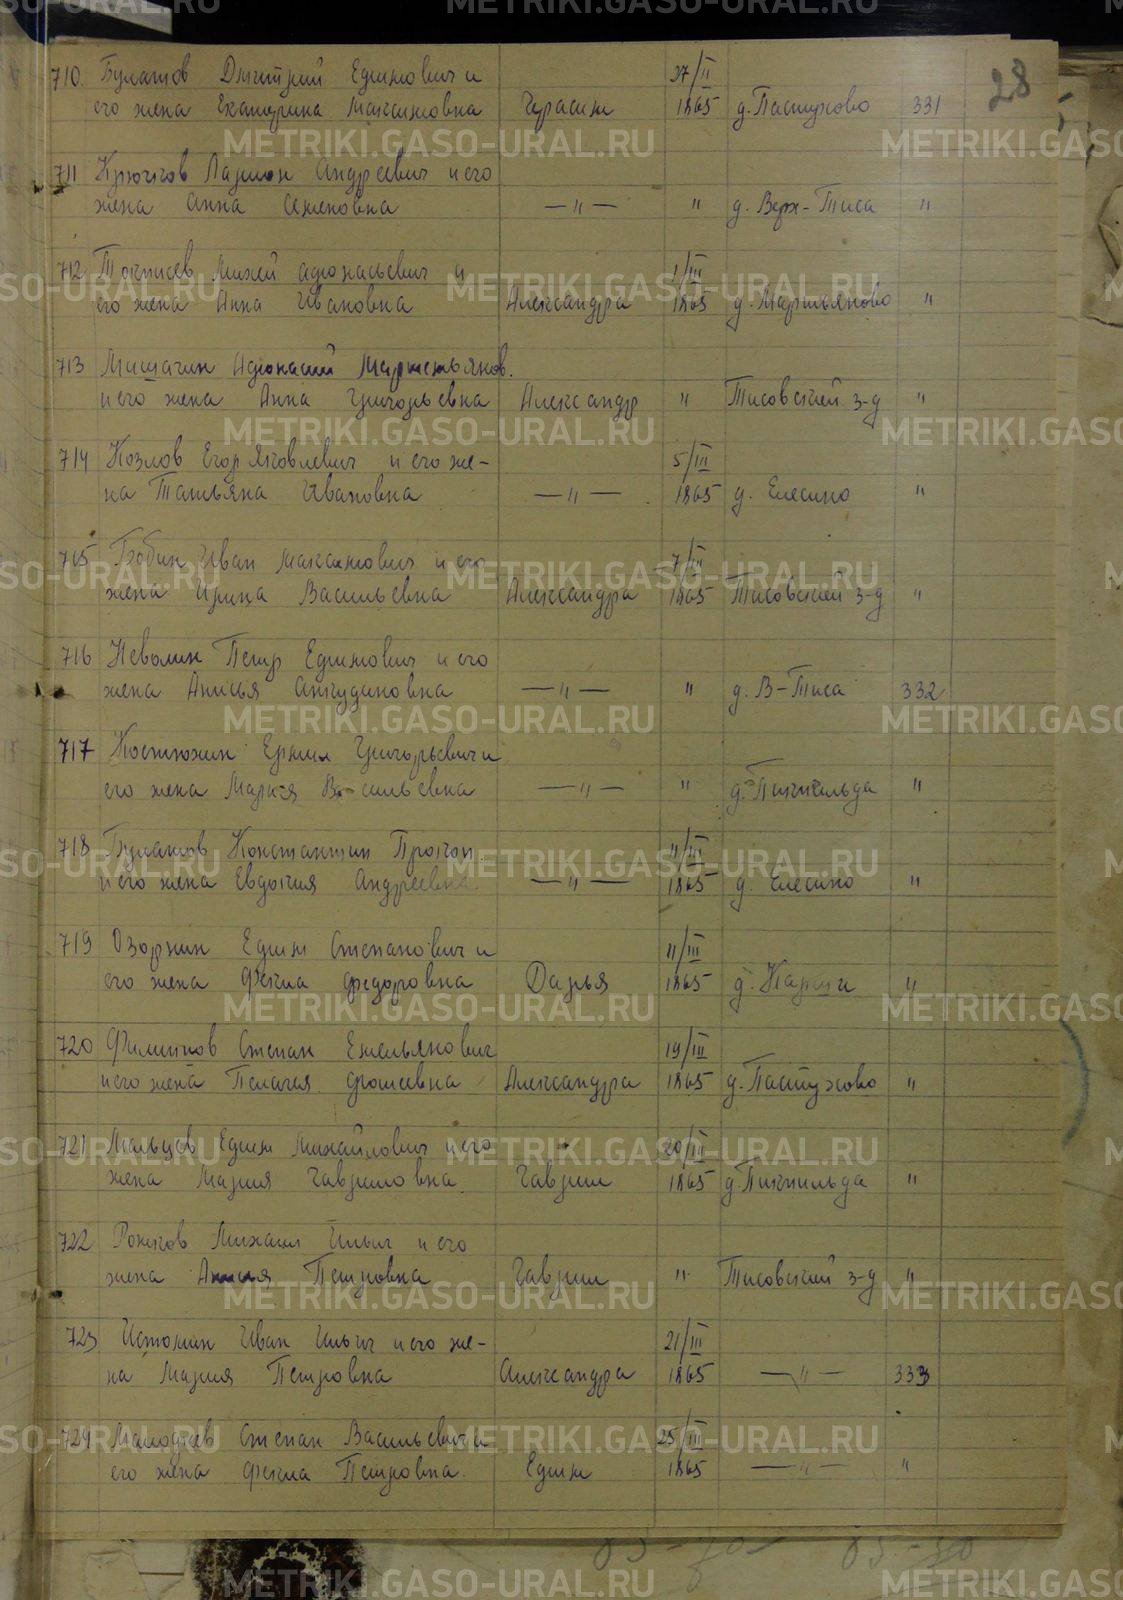 28
710. Булатов Дмитрий Ефимович и 27/II
его жена Екатерина Максимовна Герасим 1865 д. Пастухово 331
711 Крючков Ларион Андреевич и его
жена Анна Семеновна —"— " д. Верх-Тиса "
712 Михей Афонасьевич и 1/III
его жена Анна Ивановна Александра 1865 д. Марийково "
713 Мишагин Афонасий
и его жена Анна Григорьевна Александр " Тисовский з-д "
714 Козлов Егор Яковлевич и его же- 5/III
на Татьяна Ивановна —"— 1865 д. Елесино "
715 Бобин Иван Максимович и его 7/III
жена Ирина Васильевна Александра 1865 Тисовский з-д "
716 Неволин Петр Ефимович и его
жена Анисья Анкудиновна —"— " д. В-Тиса 332
717 Костюхин Ермил Григорьевич и
его жена Мария Васильевна —"— " "
718 Булатов Константин Прокоп. 11/III
и его жена Евдокия Андреевна. —"— 1865 д. Елесино "
719 Озорнин Ефим Степанович и 11/III
его жена Фекла Федоровна Дарья 1865 д. Карши "
720 Филиппов Степан Емельянович 19/III
и его жена Пелагея Фомевна Александра 1865 д. Пастухово "
721 Мальцев Ефим Михайлович и его 20/III
жена Мария Гавриловна. Гаврил 1865 "
722 Михаил Ильич и его
жена Анисья Петровна Гаврил " Тисовский з-д "
723 Истомин Иван Ильич и его же- 21/III
на Мария Петровна Александра 1865 —"— 333
724 Степан Васильевич и 25/III
его жена Фекла Петровна. Ефим 1865 —"— "
METRIKI.GASO-URAL.RU